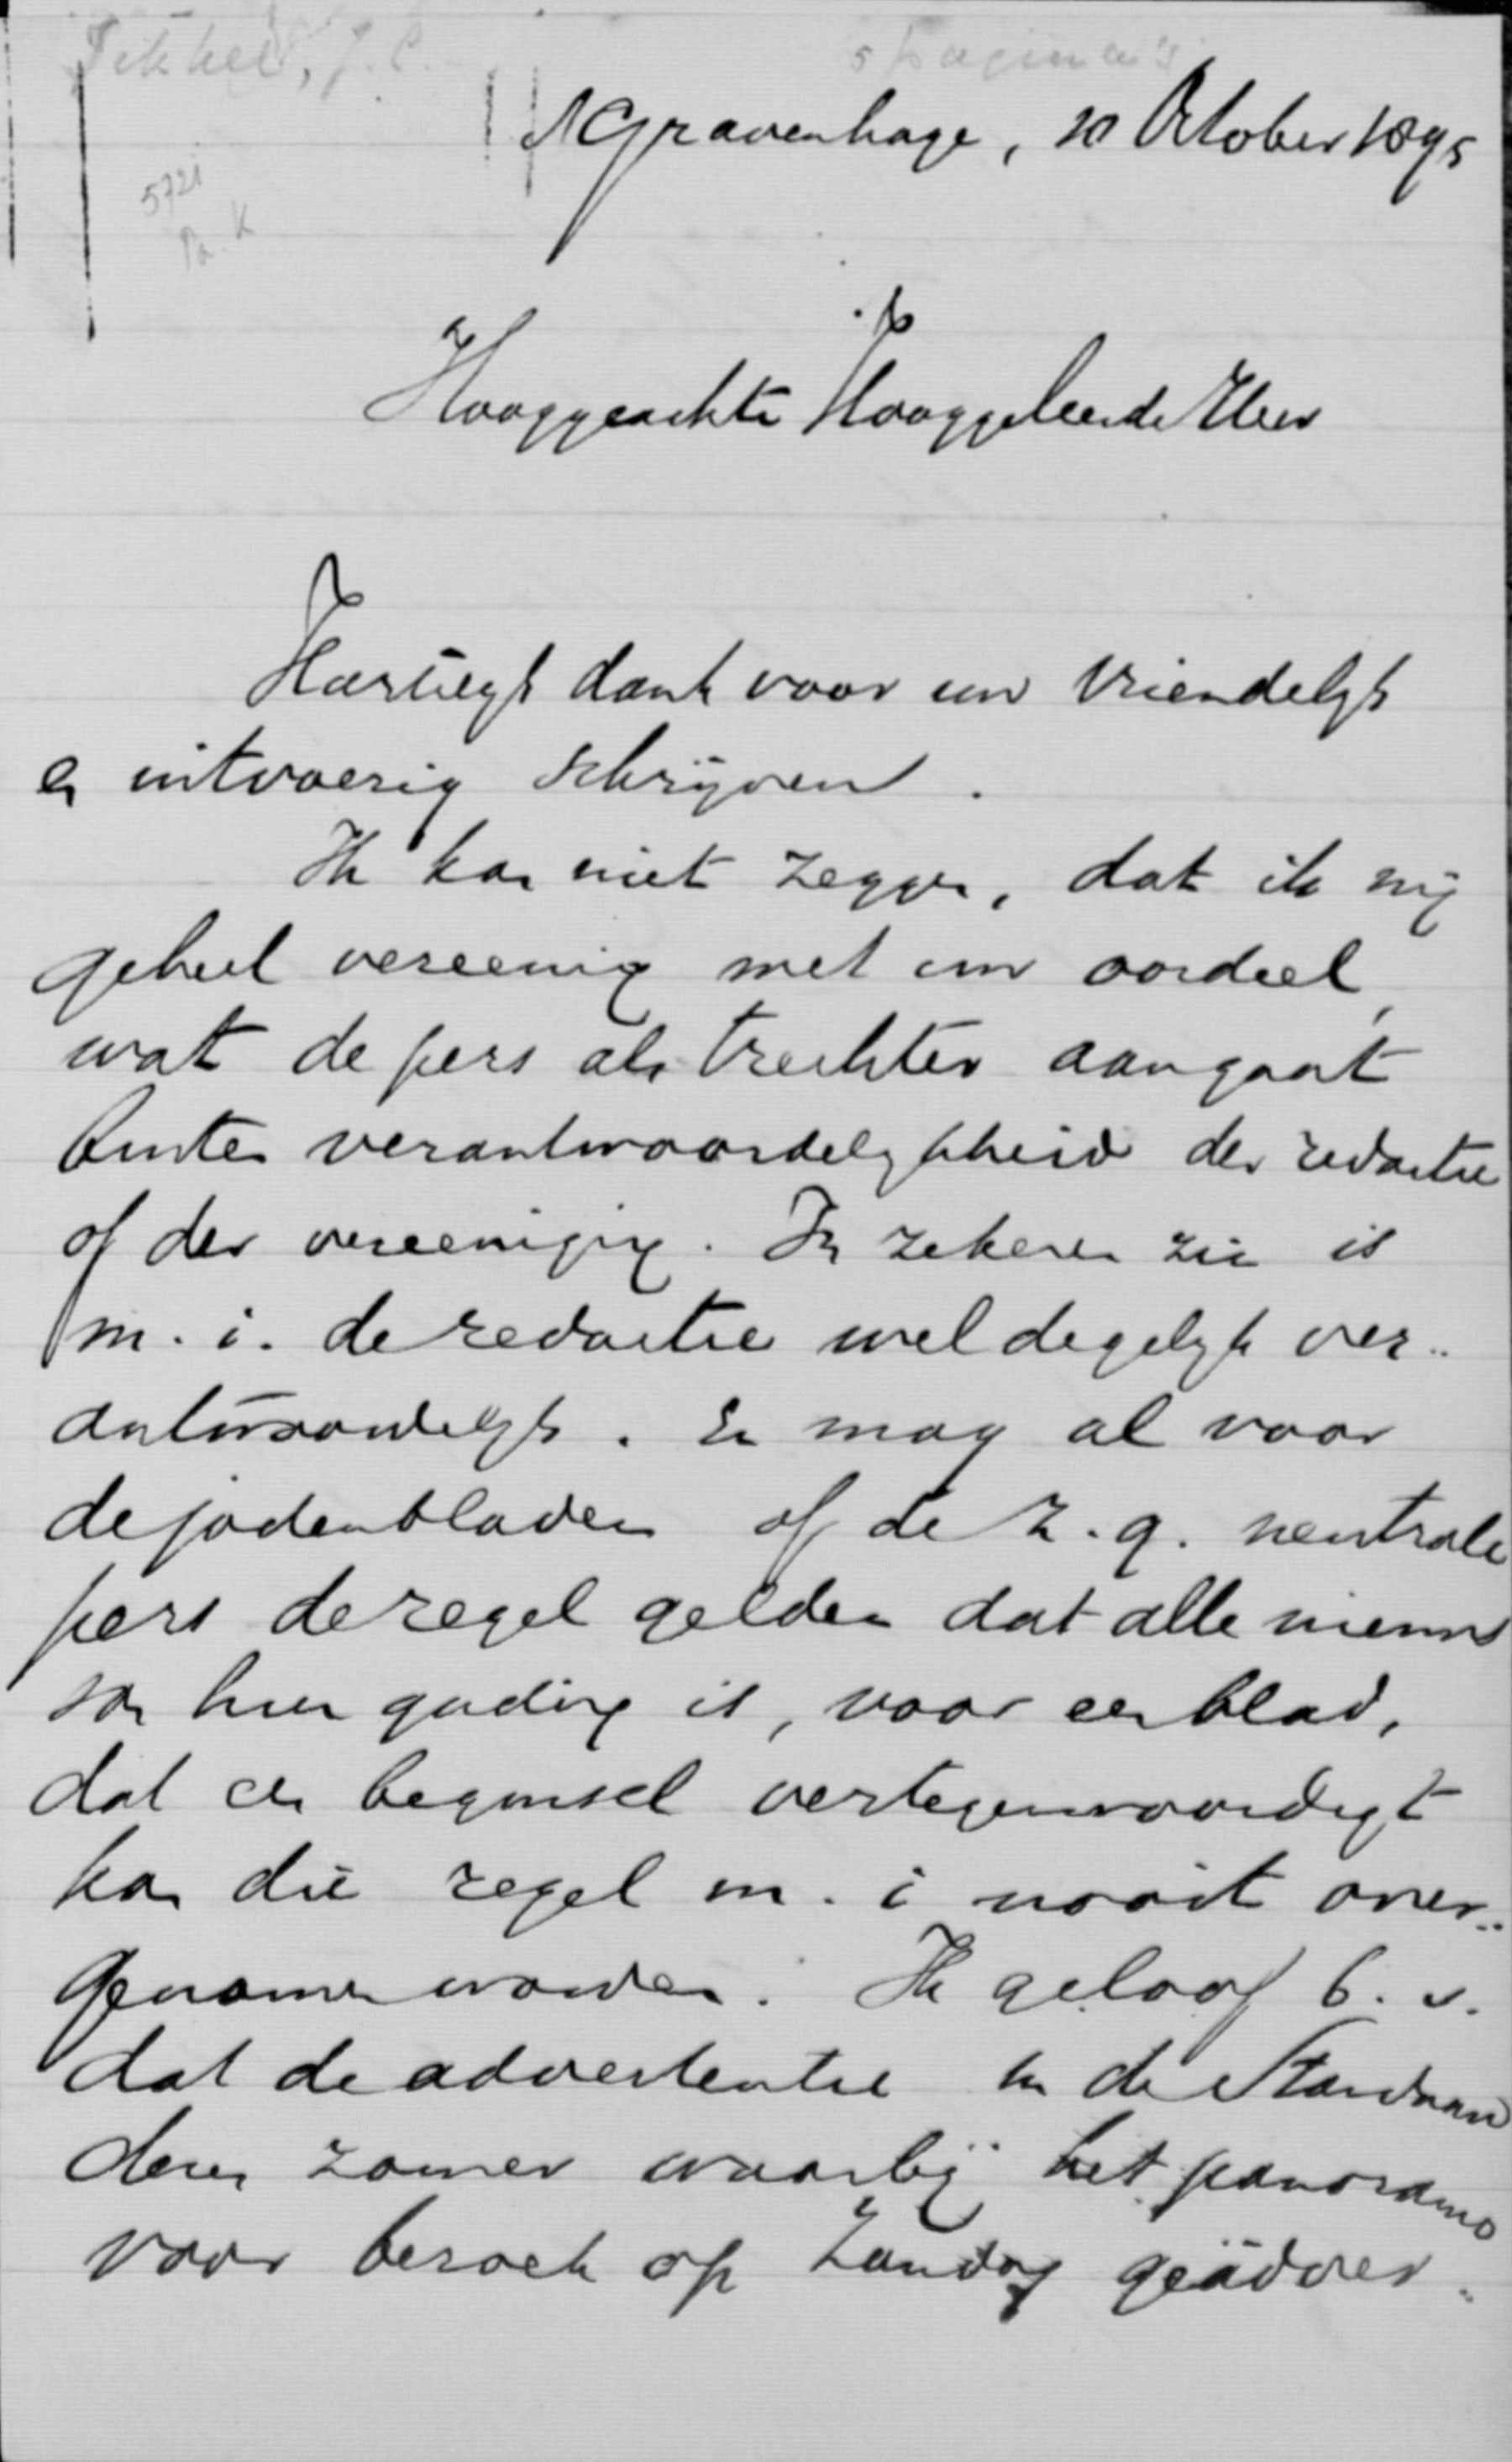 Sikkel, J.C.
5 pagina's
sGravenhage, 20 October 1895
5721
Pa. K
Hooggeachte Hooggeleerde Heer
Hartelijk dank voor uw vriendelijk
en uitvoerig schrijven.
Ik kan niet zeggen, dat ik mij
geheel vereenig met uw oordeel,
wat de pers als trechter aangaat
buiten verantwoordelijkheid der redactie
of der vereeniging. In zekeren zin is
m. i. de redactie wel degelijk ver-
antwoordelijk. Er mag al voor
de jodenbladen of de z. g. neutrale
pers de regel gelden dat alle nieuws
van hun gading is, voor een blad,
dat een beginsel vertegenwoordigt
kan die regel m. i nooit over-
genomen worden. Ik geloof b. v.
dat de advertentie in de Standaard
dezen zomer waarbij het panorama
voor bezoek op Zondag geädver-